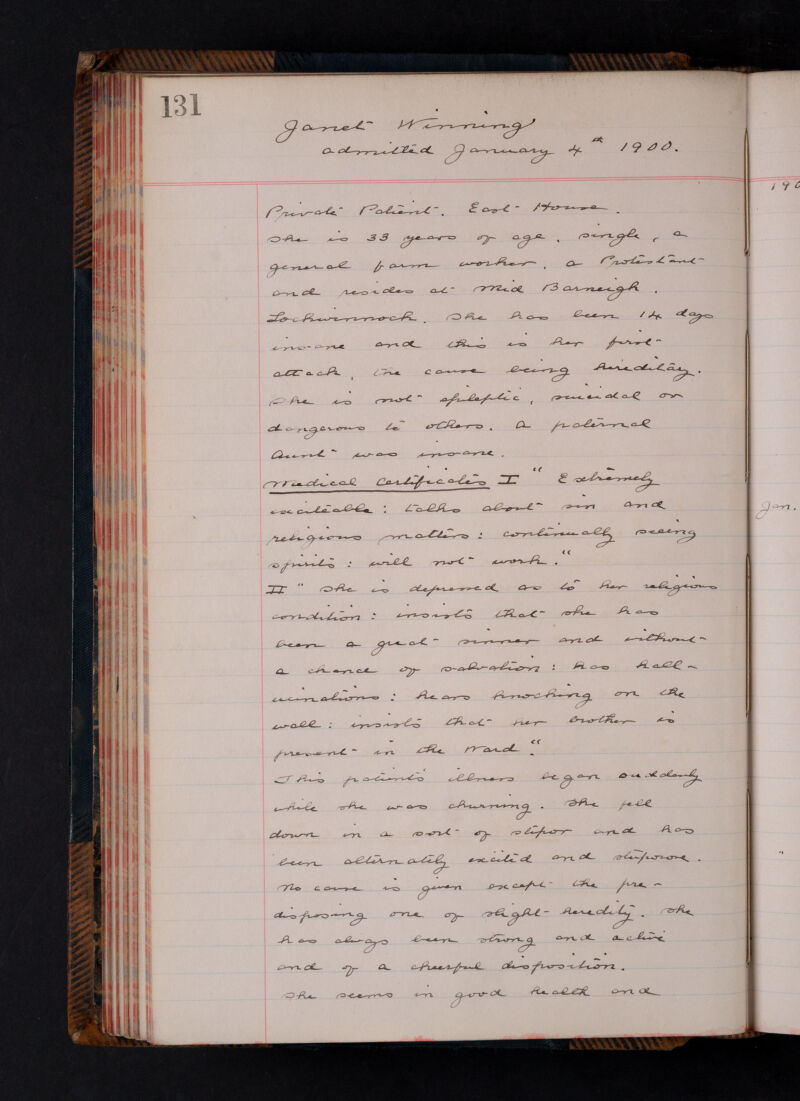 131
Janet Winning
admitted January 4th 1900.
Private Patient. East House.
She is 33 years of age, single, a
general farm worker, a Protestant
and resides at Mid Barneigh,
Lochwinnoch. She has been 14 days
insane and this is her first
attack, the cause being hereditary.
She is not epileptic, suicidal or
dangerous to others. A paternal
Aunt was insane.
Medical Certificates I "Extremely
exciteable: talks about sin and
religious matters: continually seeing
spirits: will not work."
II "She is depressed as to her religious
condition: insists that she has
been a great sinner and without
a chance of salvation: has hall-
ucinations: hears knocking on the
wall: insists that her brother is
present in the Ward".
This patients illness began suddenly
while she was churning. She fell
down in a sort of stupor and has
been alternately excited and stuporose.
No cause is given except the pre-
disposing one of slight heredity. She
has always been strong and active
and of a cheerful disposition.
She seems in good health and
190
Jan.
"